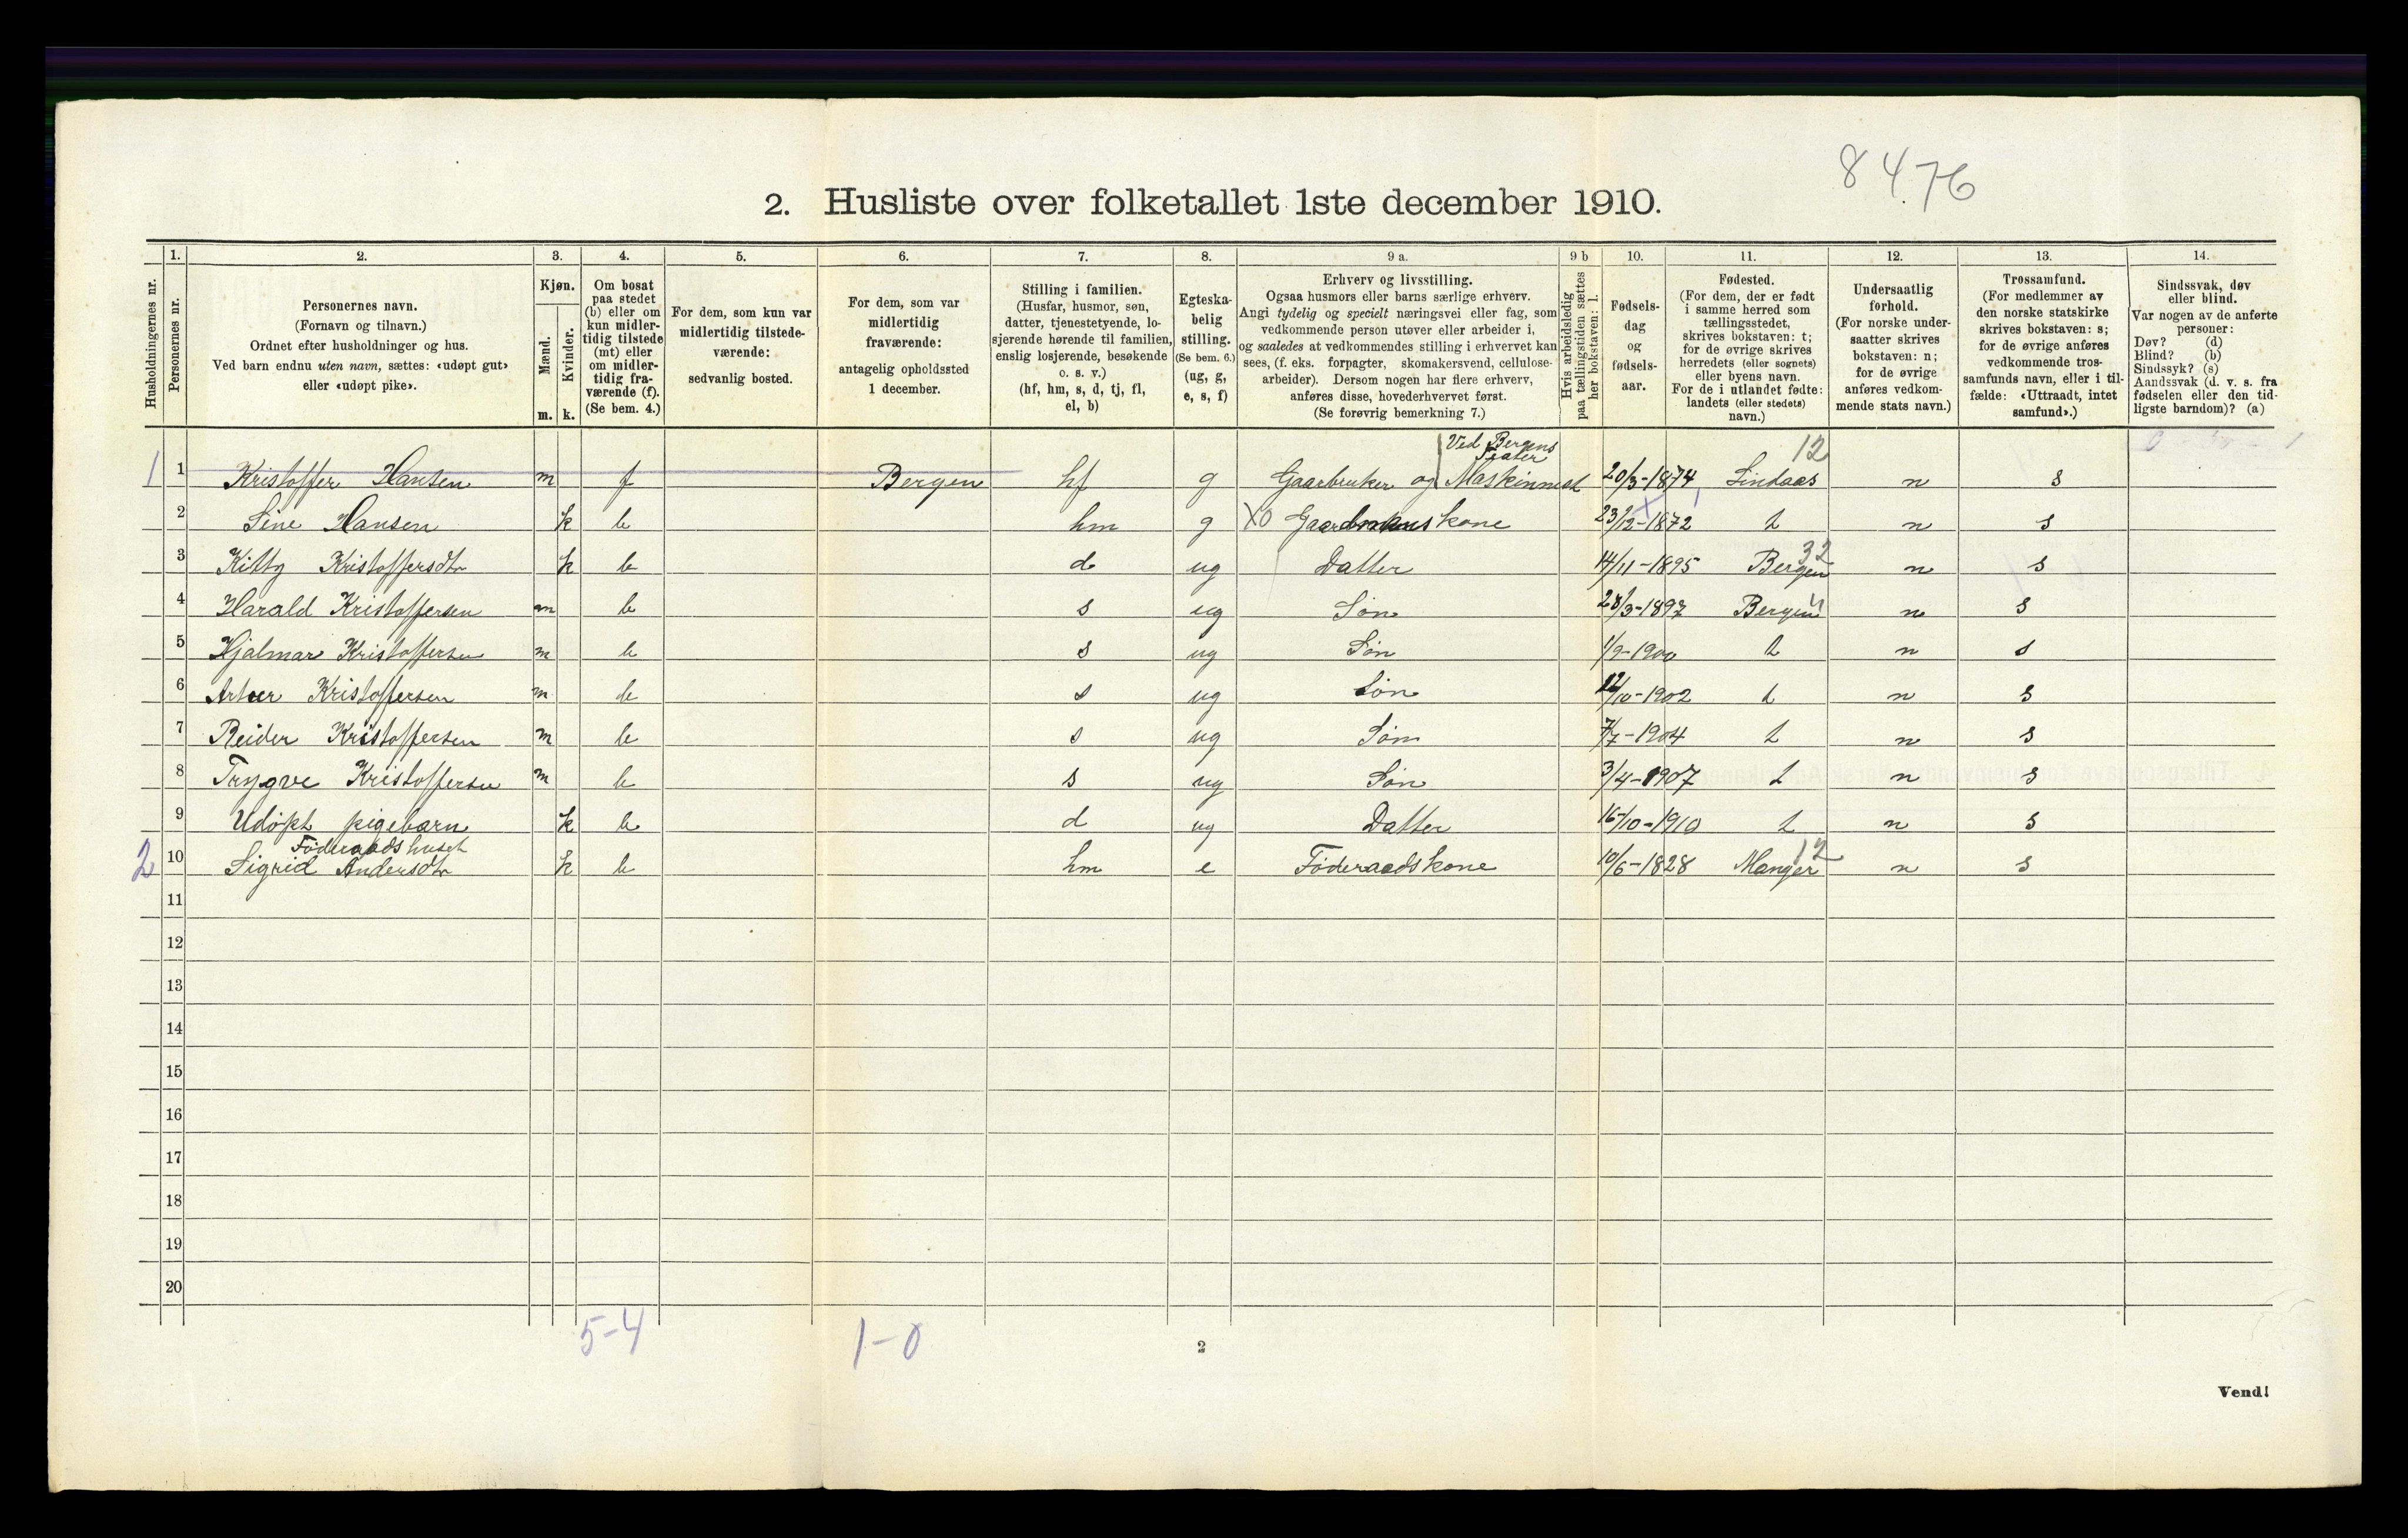 8476
2. Husliste over folketallet 1ste december 1910.
Husholdningernes nr.
1. Personernes nr.
2. Personernes navn.
(Fornavn og tilnavn.)
Ordnet efter husholdninger og hus.
Ved barn endnu uten navn, sættes: «udøpt gut»
eller «udøpt pike».
3. Kjøn.
Mænd. m.
Kvinder. k.
4. Om bosat
paa stedet
(b) eller om
kun midler-
tidig tilstede
(mt) eller
om midler-
tidig fra-
værende (f).
(Se bem. 4.)
5. For dem, som kun var
midlertidig tilstede-
værende:
sedvanlig bosted.
6. For dem, som var
midlertidig
fraværende:
antagelig opholdssted
1 december.
7. Stilling i familien.
(Husfar, husmor, søn,
datter, tjenestetyende, lo-
sjerende hørende til familien,
enslig losjerende, besøkende
o. s. v.)
(hf, hm, s, d, tj, fl,
el, b)
8. Egteska-
belig
stilling.
(Se bem. 6.)
(ug, g,
e, s, f)
9 a. Erhverv og livsstilling.
Ogsaa husmors eller barns særlige erhverv.
Angi tydelig og specielt næringsvei eller fag, som
vedkommende person utøver eller arbeider i,
og saaledes at vedkommendes stilling i erhvervet kan
sees, (f. eks. forpagter, skomakersvend, cellulose-
arbeider). Dersom nogen har flere erhverv,
anføres disse, hovederhvervet først.
(Se forøvrig bemerkning 7.)
9 b Hvis arbeidsledig
paa tællingstiden sættes
her bokstaven: l.
10. Fødsels-
dag
og
fødsels-
aar.
11. Fødested.
(For dem, der er født
i samme herred som
tællingsstedet,
skrives bokstaven: t;
for de øvrige skrives
herredets (eller sognets)
eller byens navn.
For de i utlandet fødte:
landets (eller stedets)
navn.)
12. Undersaatlig
forhold.
(For norske under-
saatter skrives
bokstaven: n;
for de øvrige
anføres vedkom-
mende stats navn.)
13. Trossamfund.
(For medlemmer av
den norske statskirke
skrives bokstaven: s;
for de øvrige anføres
vedkommende tros-
samfunds navn, eller i til-
fælde: «Uttraadt, intet
samfund».)
14. Sindssvak, døv
eller blind.
Var nogen av de anførte
personer:
Døv? (d)
Blind? (b)
Sindssyk? (s)
Aandssvak (d. v. s. fra
fødselen eller den tid-
ligste barndom)? (a)
Ved Bergens
Teater 12
1 1 Kristoffer Hansen m f Bergen hf g Gaarbruker og Maskinmest 20/3-1874 Lindaas n s
2 Sine Hansen k b hm g XO Gaardbrukerskone 23/12-1872 t n s
32
3 Kitty Kristoffersdtr k b d ug Datter 14/11-1895 Bergen n s
4 Harald Kristoffersen m b s ug Søn 28/3-1897 Bergen n s
5 Hjalmar Kristoffersen m b s ug Søn 1/9-1900 t n s
6 Artur Kristoffersen m b s ug Søn 12/10-1902 t n s
7 Reider Kristoffersen m b s ug Søn 7/7-1904 t n s
8 Trygve Kristoffersen m b s ug Søn 3/4-1907 t n s
9 Udøpt pigebarn k b d ug Datter 16/10-1910 t n s
Føderaadshuset 12
2 10 Sigrid Andersdtr k b hm e Føderaadskone 10/6-1828 Manger n s
11
12
13
14
15
16
17
18
19
20
5-4 1-0
2
Vend!